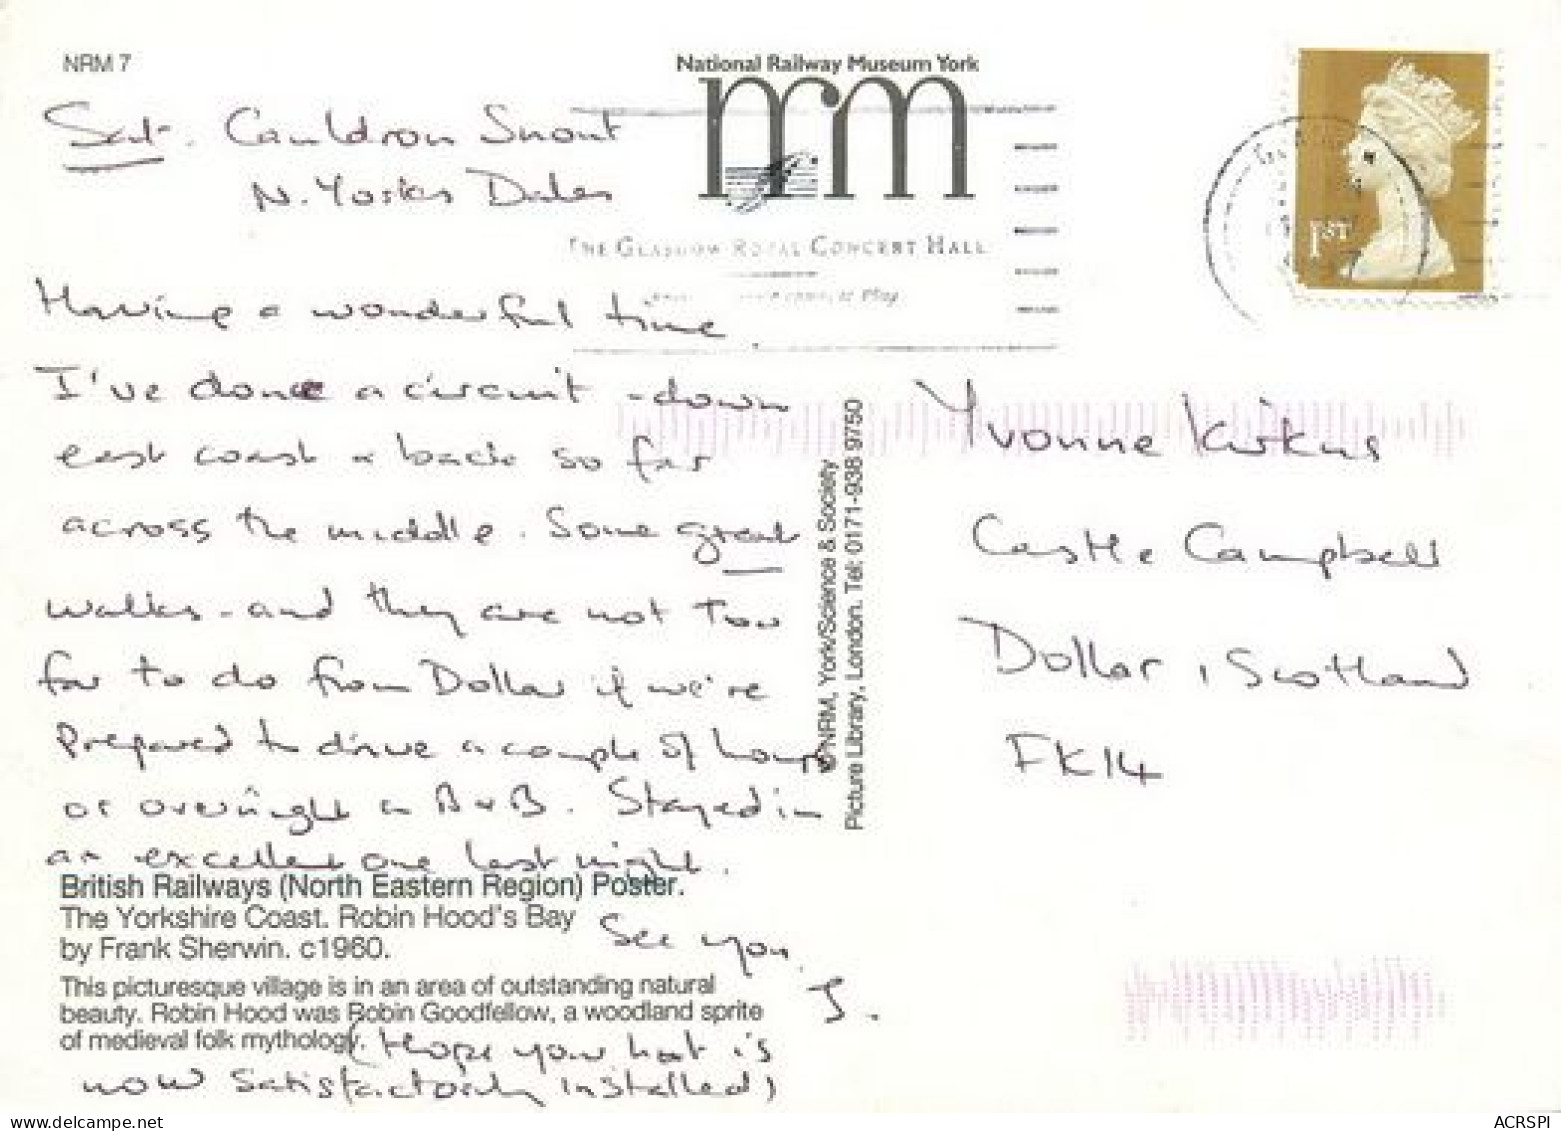 NRM 7
National Railway Museum York
nrm
Sat. Cauldron Snout
N. Yorks Dales
THE GLASGOW ROYAL CONCERT HALL
Play
1ST
Having a wonderful time
I've done a circuit - down
east coast & back so far
across the middle. Some great
walks - and they are not too
far to do from Dollar if we're
Prepared to drive a couple of hours
or overnight in B & B. Stayed in
an excellent one last night.
British Railways (North Eastern Region) Poster.
The Yorkshire Coast. Robin Hood's Bay
by Frank Sherwin. c1960.
See you
J.
This picturesque village is in an area of outstanding natural
beauty. Robin Hood was Robin Goodfellow, a woodland sprite
of medieval folk mythology.
(Hope your hat is
now satisfactorily installed)
© NRM, York/Science & Society
Picture Library, London. Tel: 0171-938 9750
Yvonne Kirkus
Castle Campbell
Dollar, Scotland
FK14
ACRSPI